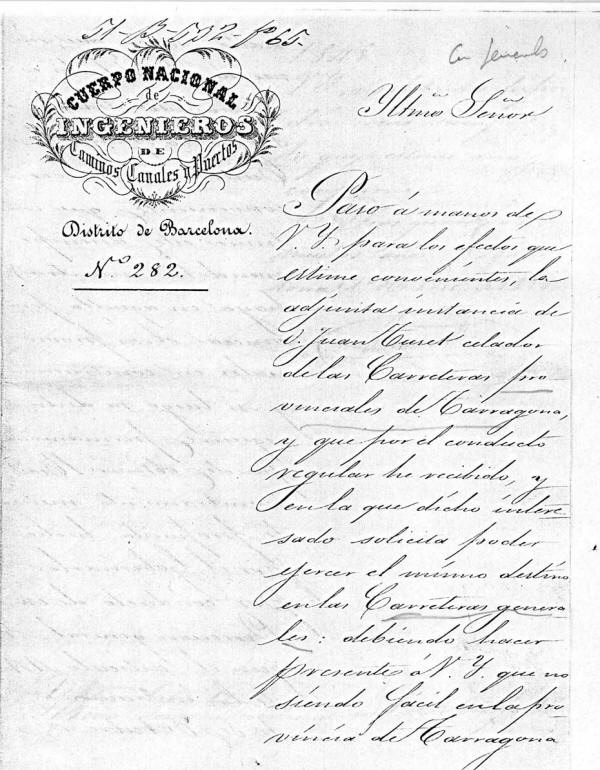 51-B-532-Nº 65-
Yltmo Señor
CUERPO NACIONAL
de
INGENIEROS
DE
Caminos Canales y Puertos
Distrito de Barcelona.
N.º 282.
Paso á manos de
V. Y. para los efectos que
estime convenientes, la
adjunta instancia de
D. Juan Turet celador
de las Carreteras pro
vinciales de Tarragona,
y que por el conducto
regular he recibido, y
en la que dicho intere-
sado solicita poder
ejercer el mismo destino
en las Carreteras genera
les: debiendo hacer
presente á V. Y. que no
siendo fácil en la pro
vincia de Tarragona